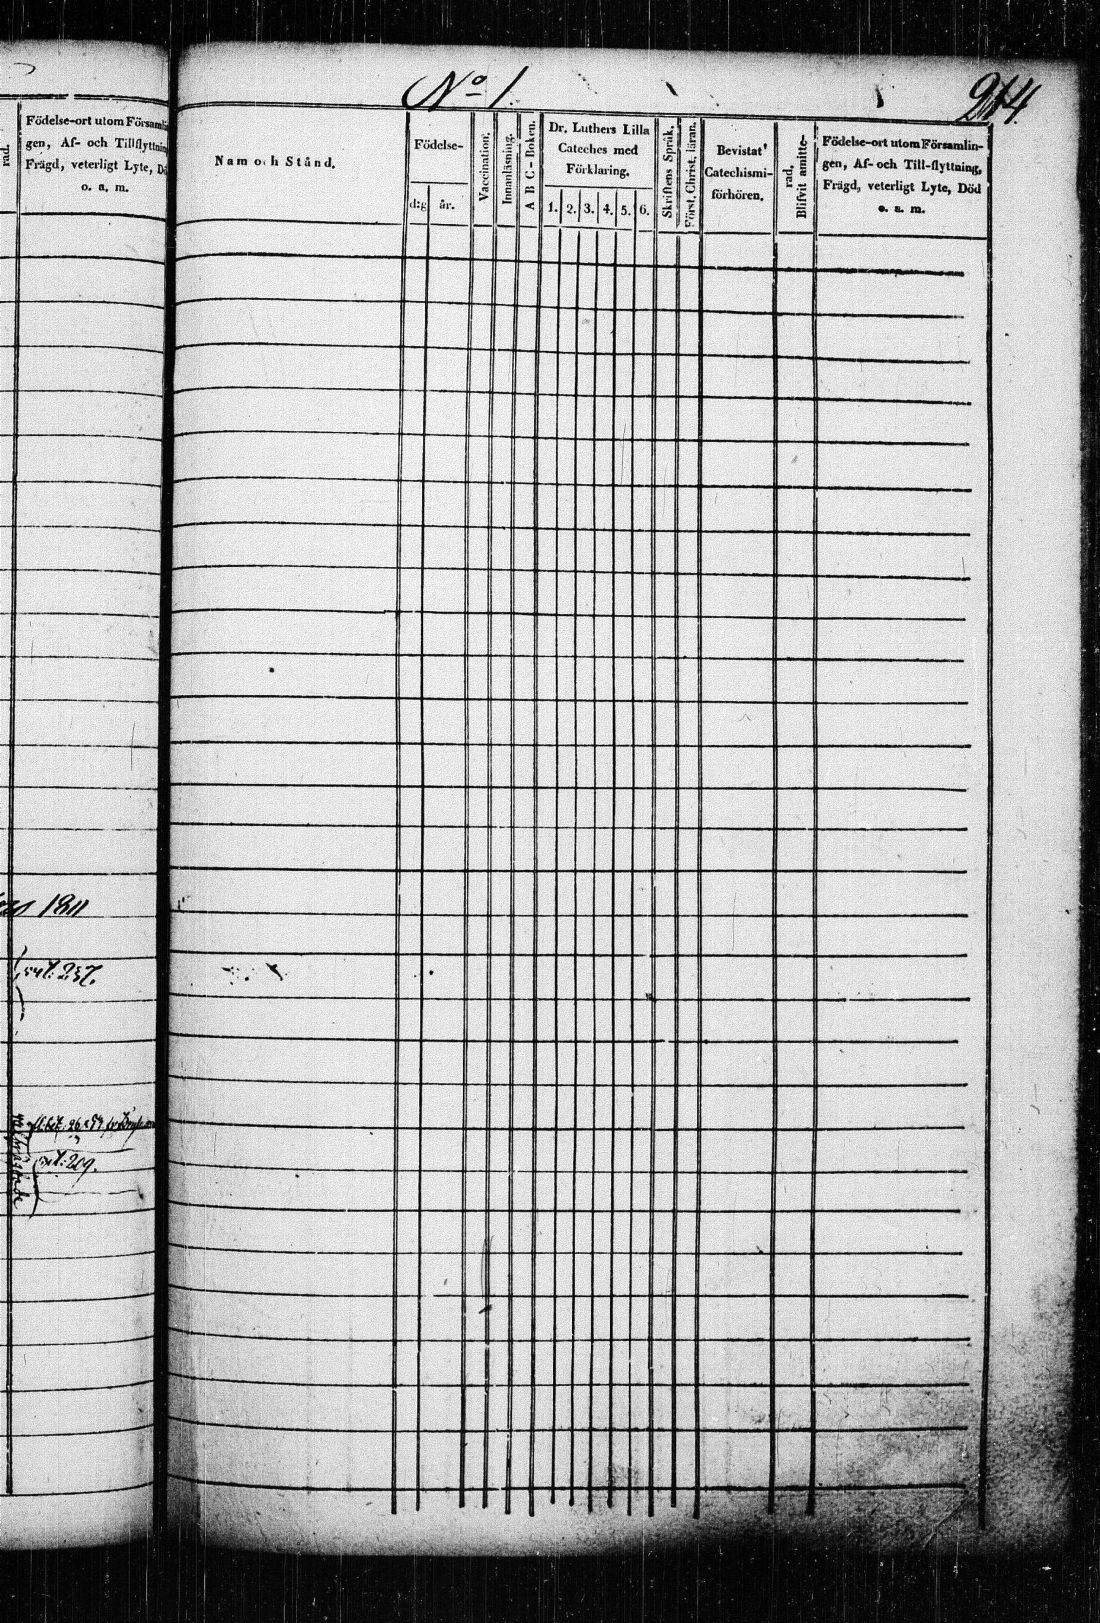 rad.
Födelse-ort utom Församlin
gen, Af- och Tillflyttning
Frägd, veterligt Lyte, Dö
o. a. m.
1811
257.
209.
No 1.
214
Namn och Stånd.
Födelse-
dag
år.
Vaccination.
Innanläsning.
A B C - Boken.
Dr. Luthers Lilla
Cateches med
Förklaring.
1. 2. 3. 4. 5. 6.
Skriftens Språk.
Först. Christ. läran.
Bevistat
Catechismi-
förhören.
rad.
Blifvit amitte-
Födelse-ort utom Församlin-
gen, Af- och Till-flyttning,
Frägd, veterligt Lyte, Död
o. a. m.